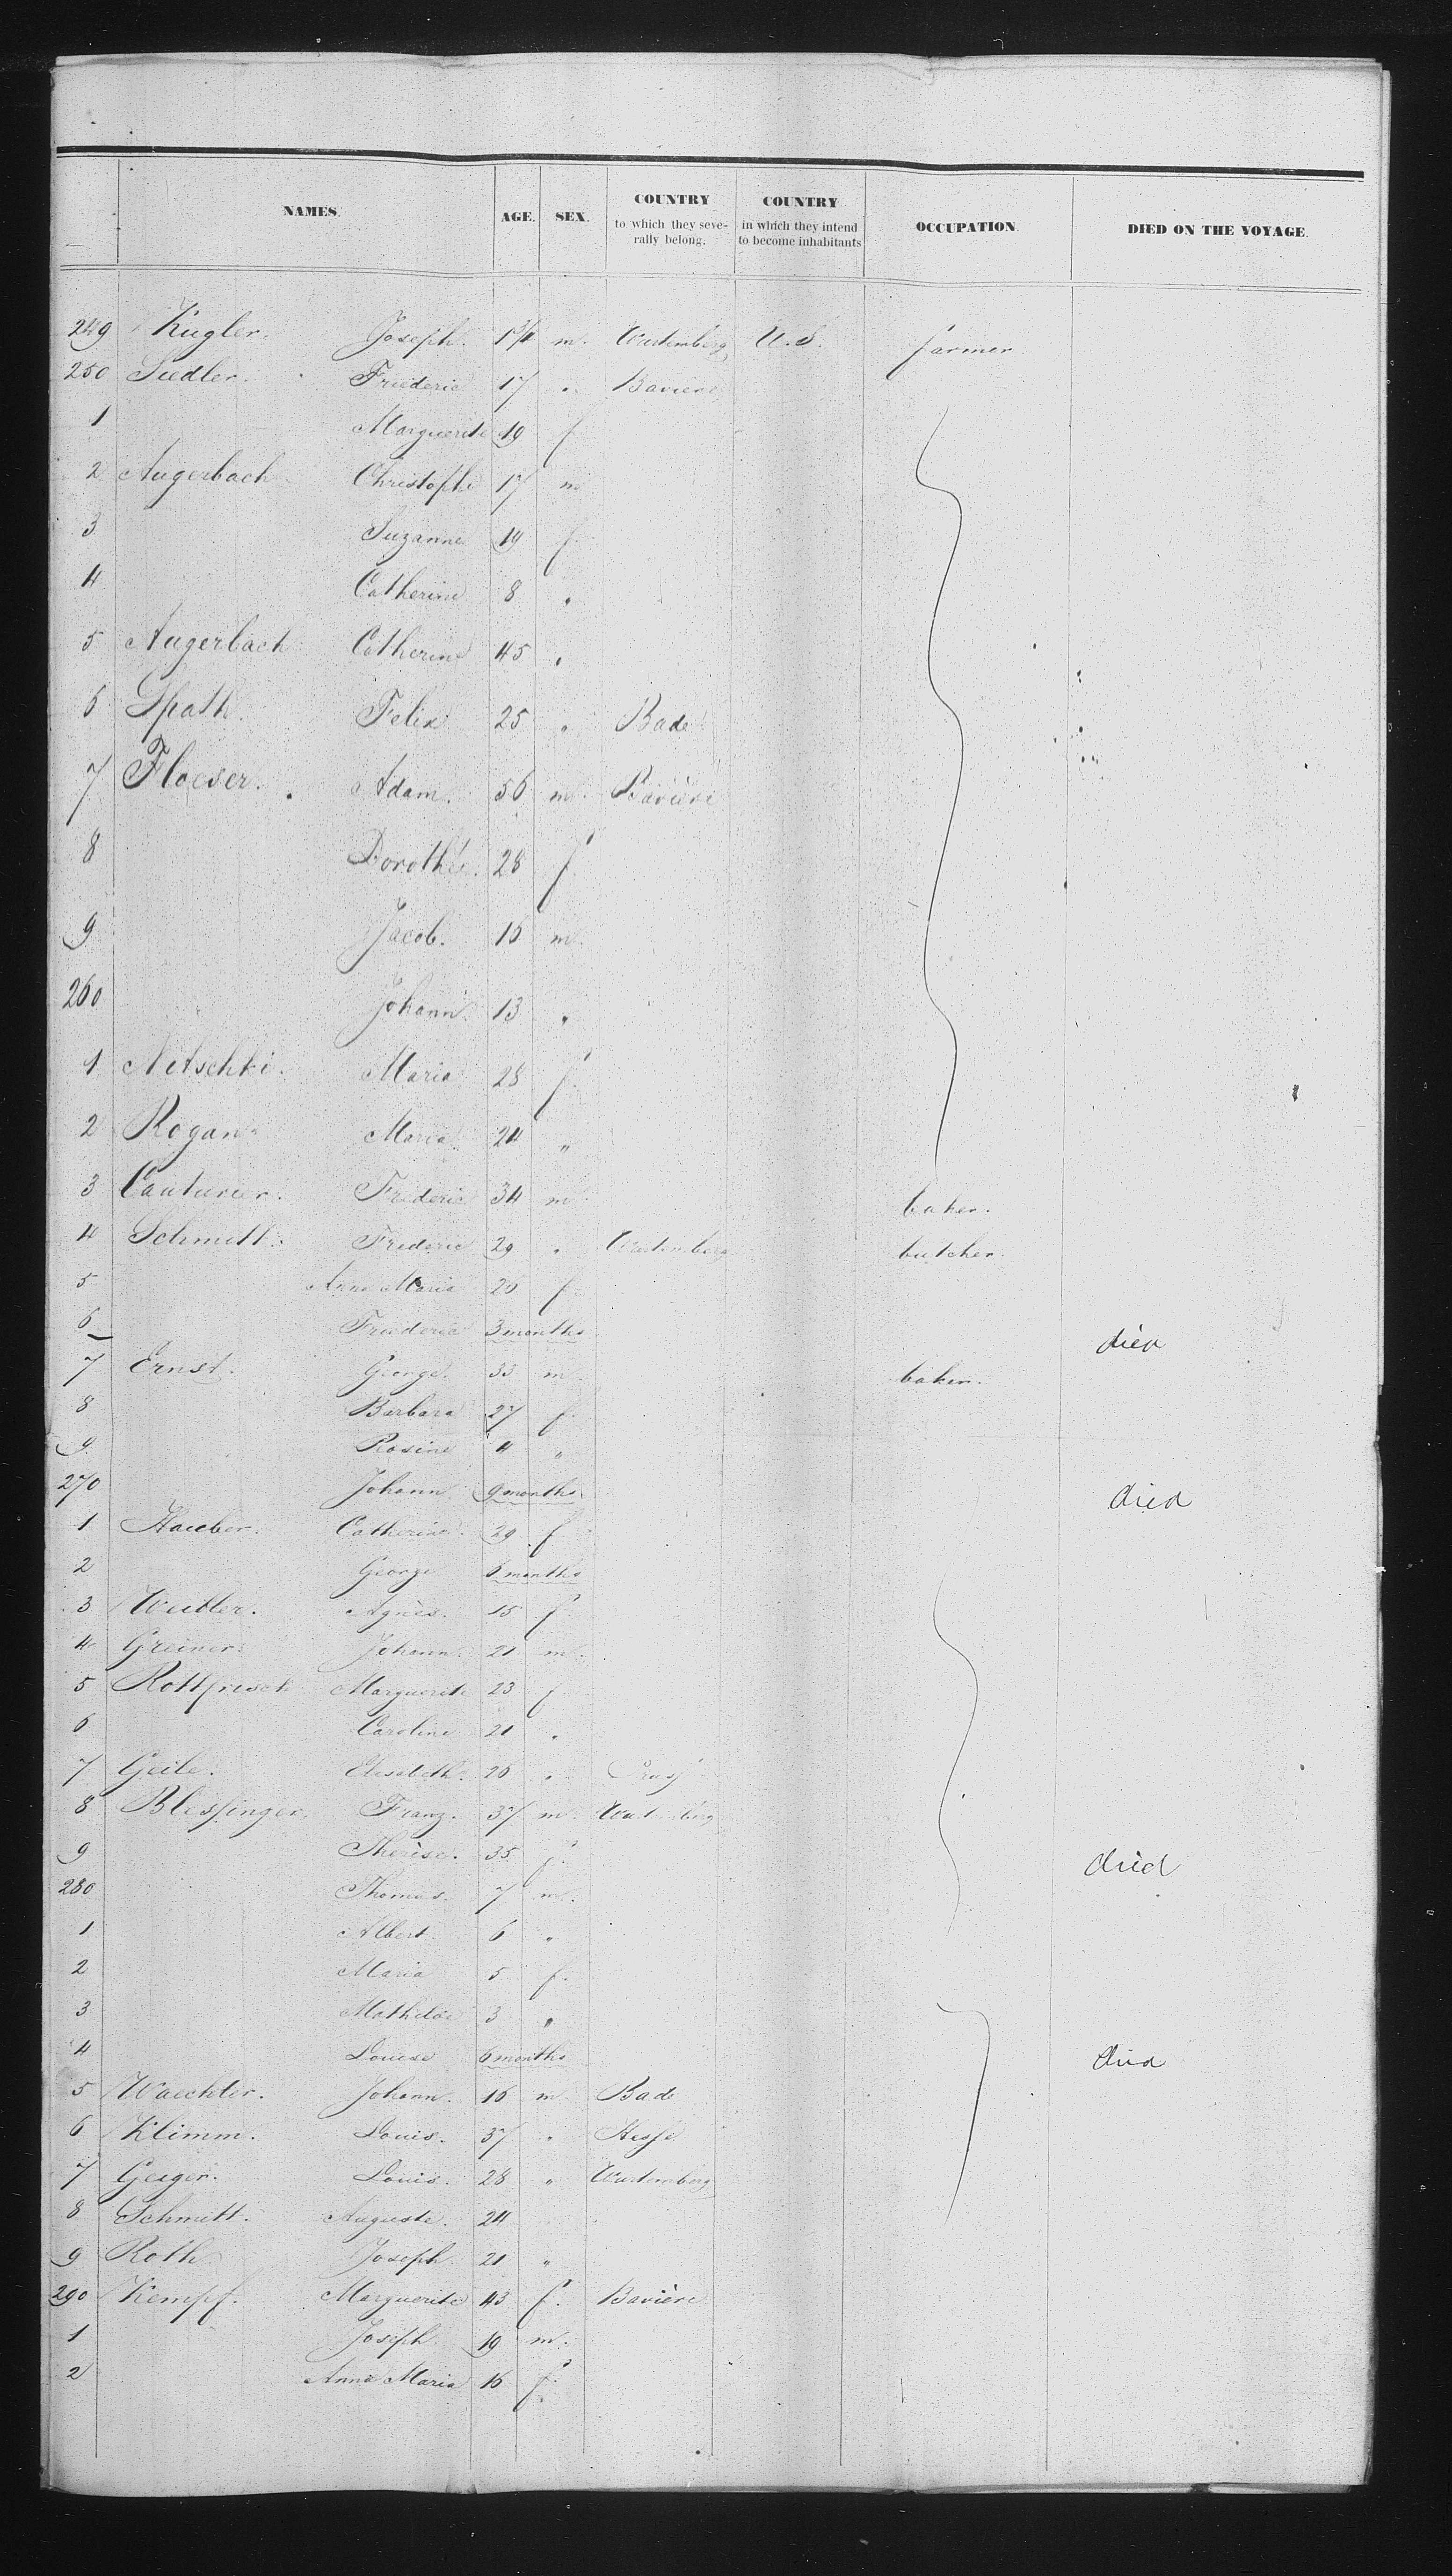 NAMES. AGE. SEX. COUNTRY to which they severally belong. COUNTRY in which they intend to become inhabitants OCCUPATION. DIED ON THE VOYAGE.
249 Kugler. Joseph. m. Wurtemberg U.S. farmer
250 Siedler. Friederic 17 " Baviere
1 Marguerite 19 f
2 Augerbach Christophe 17 m
3 Suzanne 19 f.
4 Catherine 8 "
5 Augerbach Catherine 45 "
6 Spath. Felix 25 " Bade
7 Floeser. Adam. 56 m. Bavière
8 Dorothée. 28 f
9 Jacob. 16 m.
260 Johann. 13 "
1 Netschki. Maria 28 f.
2 Rogan Maria 24 "
3 Couturier. Frederic 34 m baker.
4 Schmitt. Frederic 29 " Wurtemberg butcher.
5 Anna Maria 20 f.
6 Friederic 3 months died
7 Ernst. George. 33 m. baker.
8 Barbara 27 f.
9 Rosine 4 "
270 Johann 9 months died
1 Hauber. Catherine. 29 f
2 George 6 months
3 Agnès. 15 f.
4 Greiner. Johann. 21 m.
5 Marguerite 23 f
6 Caroline 21 "
7 Geile. Elisabeth. 26 "
8 Blessinger. Franz. 37 m. Wurtemberg
9 Therèse. 35 f. died
280 Thomas. 7 m.
1 Albert. 6 "
2 Maria 5 f.
3 3 "
4 Louise 6 months died
5 Waechter. Johann. 16 m Bade
6 Klimm. Louis. 37 " Hesse
7 Geiger. Louis. 28 " Wurtemberg
8 Schmitt. Auguste. 24
9 Roth Joseph. 21 "
290 Kempf. Marguerite 43 f. Bavière
1 Joseph. 19 m.
2 Anna Maria 16 f.